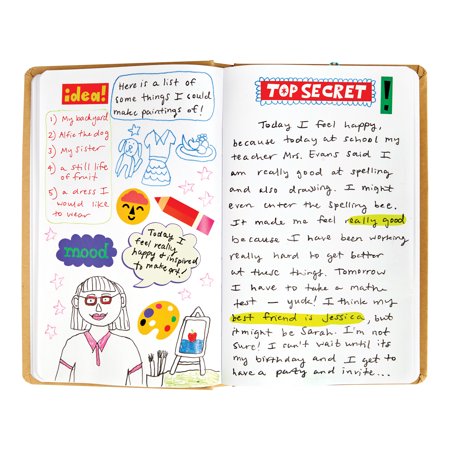 idea!
Here is a list of
some things I could
make paintings of!
1) My backyard
2) Alfie the dog
3) My sister
4) a still life
of fruit
5) a dress I
would like
to wear
Today I
feel really
happy & inspired
to make art!
mood
TOP SECRET !
Today I feel happy,
because today at school my
teacher Mrs. Evans said I
am really good at spelling
and also drawing. I might
even enter the spelling bee.
It made me feel really good
because I have been working
really hard to get better
at these things. Tomorrow
I have to take a math
test – yuck! I think my
best friend is Jessica, but
it might be Sarah. I'm not
sure! I can't wait until its
my birthday and I get to
have a party and invite...